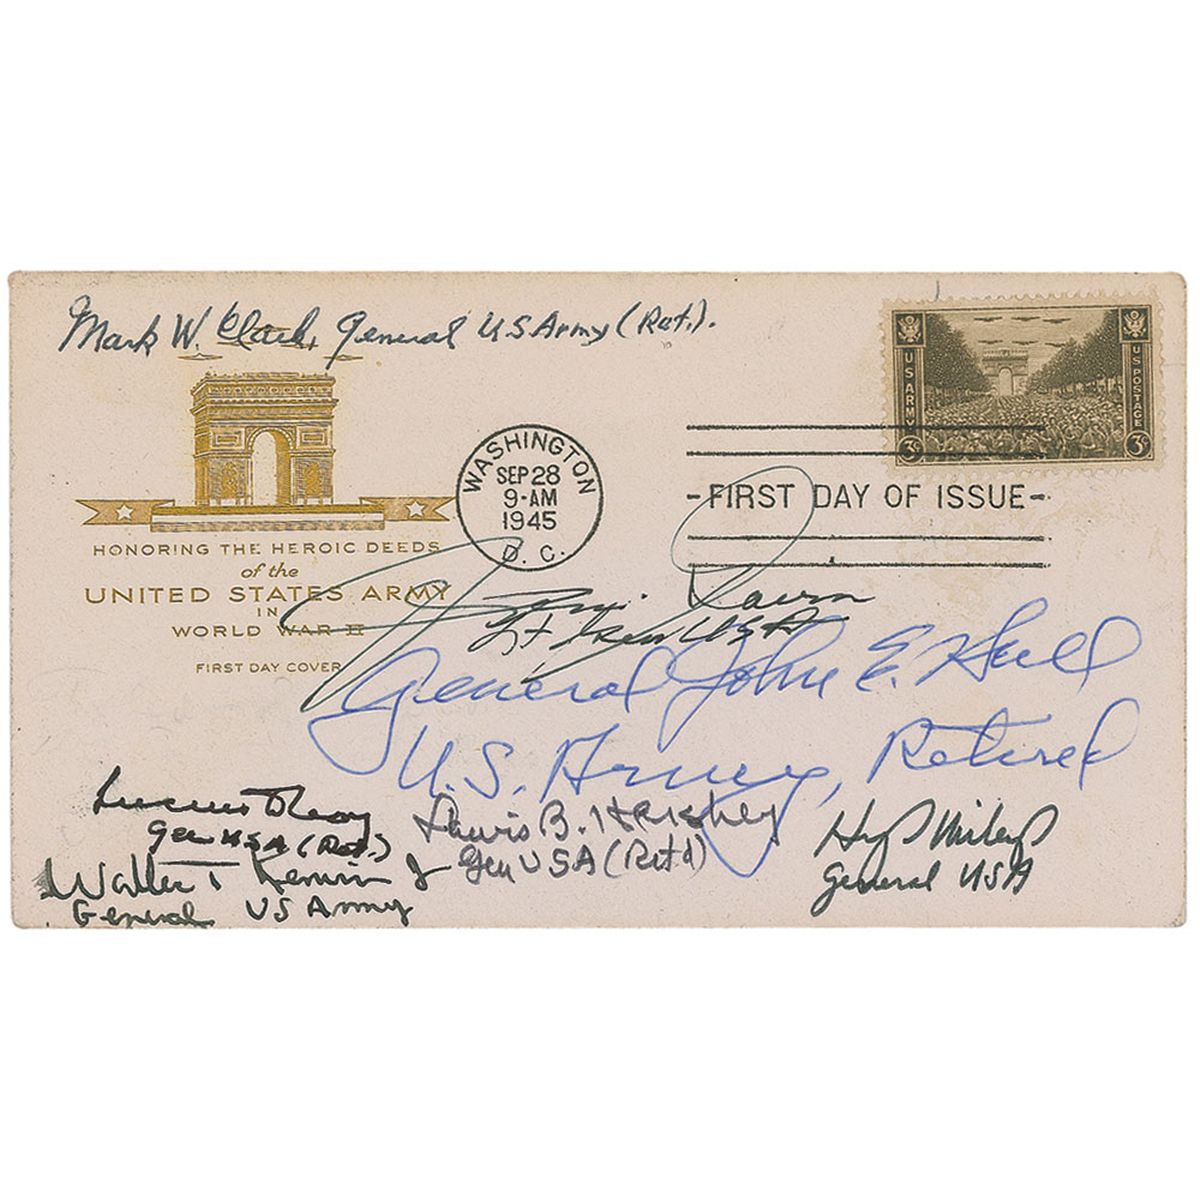 Mark W. Clark, General US Army (Ret.).
U.S. ARMY
U.S. POSTAGE
3¢ 3¢
WASHINGTON
SEP 28
9-AM
1945
D. C.
-FIRST DAY OF ISSUE-
HONORING THE HEROIC DEEDS
of the
UNITED STATES ARMY
IN
WORLD WAR II
FIRST DAY COVER
Lt Gen USA
General John E. Hull
U.S. Army, Retired
Lucius D Clay
Gen USA (Ret.)
Lewis B. Hershey
Gen USA (Ret'd)
General USA
Walter T Kerwin Jr
General US Army